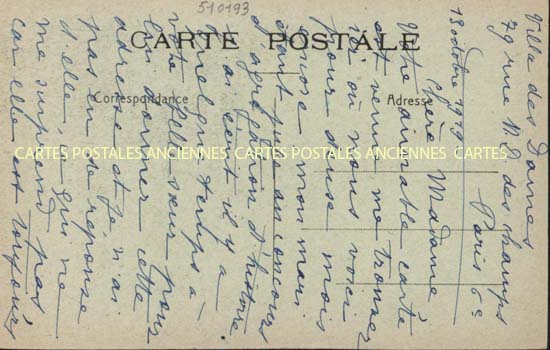 510193
CARTE POSTALE
Correspondance
Adresse
CARTES POSTALES ANCIENNES CARTES POSTALES ANCIENNES CARTES POSTALES ANCIENNES
Villa des Dames
79 rue N. D. des champs
Paris 6e
13 octobre 1919.
Chère Madame
Votre aimable carte
est venue me trouver
ici où nous voici
pour deux mois
mon mari
ayant un concours
d'agrégation d'histoire.
J'ai écrit il y a
quelque temps à
votre belle sœur pour
lui donner cette
adresse et je n'ai
pas eu de réponse
d'elle, ce qui ne
me surprend pas
car elle est toujours